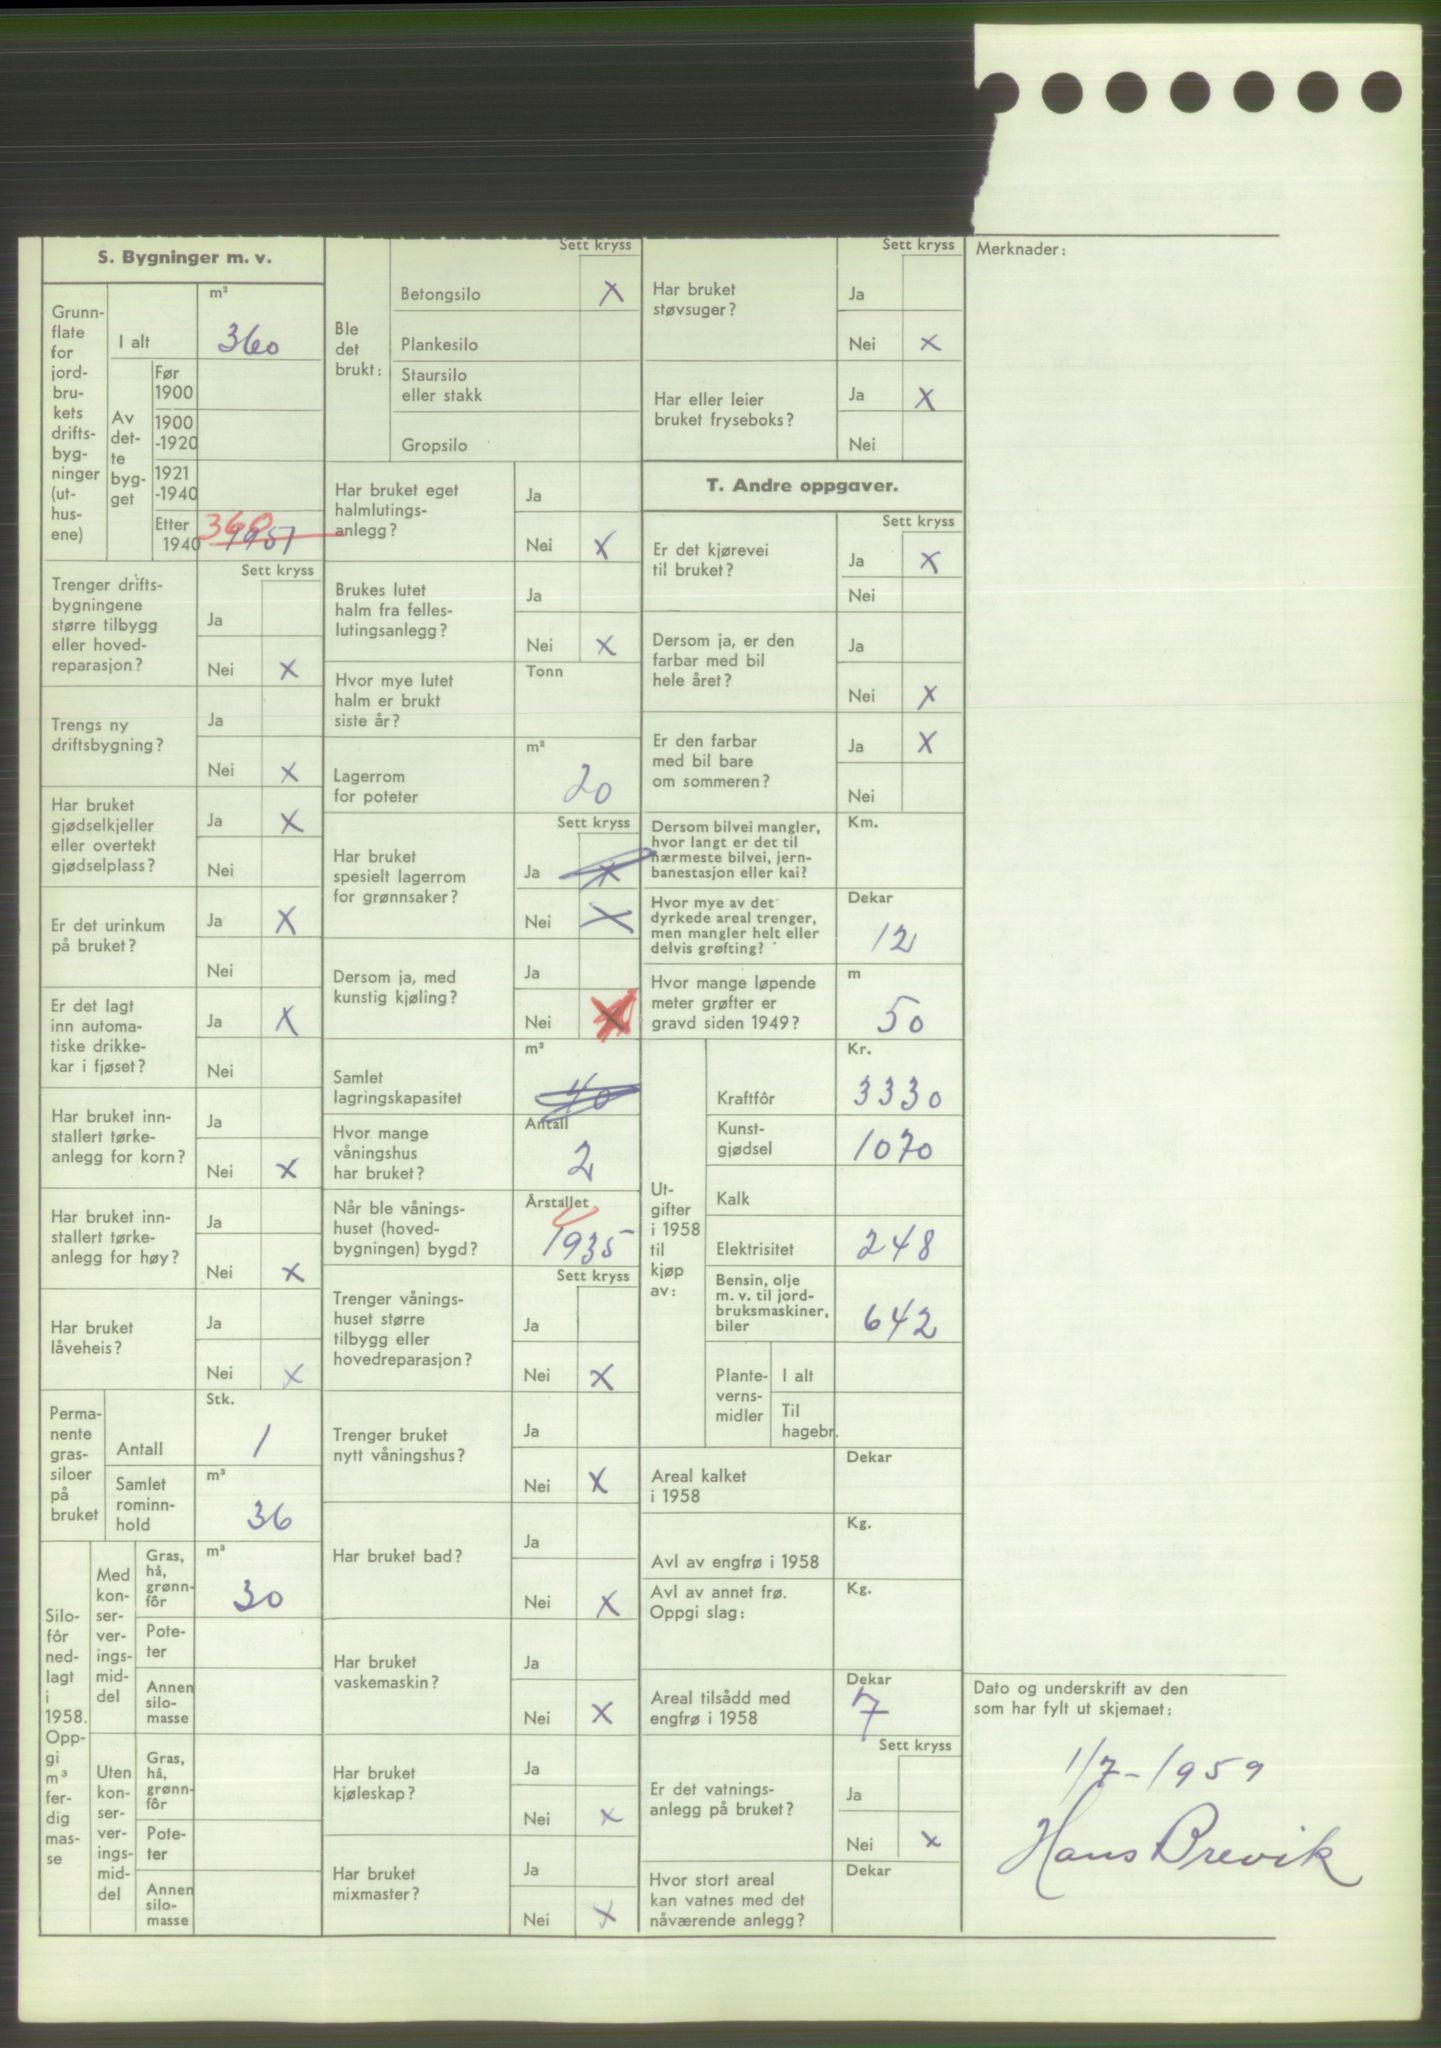 S. Bygninger m. v.
Grunn-
flate
for
jord-
bru-
kets
drifts-
byg-
ninger
(ut-
hus-
ene)
I alt
m²
360
Av
det-
te
byg-
get
Før
1900
1900
-1920
1921
-1940
Etter
1940
360
1951
Sett kryss
Trenger drifts-
bygningene
større tilbygg
eller hoved-
reparasjon?
Ja
Nei X
Trengs ny
driftsbygning?
Ja
Nei X
Har bruket
gjødselkjeller
eller overtekt
gjødselplass?
Ja X
Nei
Er det urinkum
på bruket?
Ja X
Nei
Er det lagt
inn automa-
tiske drikke-
kar i fjøset?
Ja X
Nei
Har bruket inn-
stallert tørke-
anlegg for korn?
Ja
Nei X
Har bruket inn-
stallert tørke-
anlegg for høy?
Ja
Nei X
Har bruket
låveheis?
Ja
Nei X
Perma-
nente
gras-
siloer
på
bruket
Antall
Stk.
1
Samlet
rominn-
hold
m³
36
Silo-
fôr
ned-
lagt
i
1958.
Opp-
gi
m³
fer-
dig
mas-
se
Med
kon-
ser-
ver-
ings-
mid-
del
Gras,
hå,
grønn-
fôr
m³
30
Pote-
ter
Annen
silo-
masse
Uten
kon-
ser-
ver-
ings-
mid-
del
Gras,
hå,
grønn-
fôr
Pote-
ter
Annen
silo-
masse
Ble
det
brukt:
Sett kryss
Betongsilo X
Plankesilo
Staursilo
eller stakk
Gropsilo
Har bruket eget
halmlutings-
anlegg?
Ja
Nei X
Brukes lutet
halm fra felles-
lutingsanlegg?
Ja
Nei X
Hvor mye lutet
halm er brukt
siste år?
Tonn
Lagerrom
for poteter
m²
20
Sett kryss
Har bruket
spesielt lagerrom
for grønnsaker?
Ja X
Nei X
Dersom ja, med
kunstig kjøling?
Ja
Nei X
Samlet
lagringskapasitet
m³
40
Hvor mange
våningshus
har bruket?
Antall
2
Når ble vånings-
huset (hoved-
bygningen) bygd?
Årstallet
1935
Sett kryss
Trenger vånings-
huset større
tilbygg eller
hovedreparasjon?
Ja
Nei X
Trenger bruket
nytt våningshus?
Ja
Nei X
Har bruket bad?
Ja
Nei X
Har bruket
vaskemaskin?
Ja
Nei X
Har bruket
kjøleskap?
Ja
Nei X
Har bruket
mixmaster?
Ja
Nei X
Sett kryss
Har bruket
støvsuger?
Ja
Nei X
Har eller leier
bruket fryseboks?
Ja X
Nei
T. Andre oppgaver.
Sett kryss
Er det kjørevei
til bruket?
Ja X
Nei
Dersom ja, er den
farbar med bil
hele året?
Ja
Nei X
Er den farbar
med bil bare
om sommeren?
Ja X
Nei
Dersom bilvei mangler,
hvor langt er det til
nærmeste bilvei, jern-
banestasjon eller kai?
Km.
Hvor mye av det
dyrkede areal trenger,
men mangler helt eller
delvis grøfting?
Dekar
12
Hvor mange løpende
meter grøfter er
gravd siden 1949?
m
50
Ut-
gifter
i 1958
til
kjøp
av:
Kr.
Kraftfôr 3330
Kunst-
gjødsel 1070
Kalk
Elektrisitet 248
Bensin, olje
m. v. til jord-
bruksmaskiner,
biler
642
Plante-
verns-
midler
I alt
Til
hagebr.
Areal kalket
i 1958
Dekar
Avl av engfrø i 1958
Kg.
Avl av annet frø.
Oppgi slag:
Kg.
Areal tilsådd med
engfrø i 1958
Dekar
7
Sett kryss
Er det vatnings-
anlegg på bruket?
Ja
Nei X
Hvor stort areal
kan vatnes med det
nåværende anlegg?
Dekar
Merknader:
Dato og underskrift av den
som har fylt ut skjemaet:
1/7-1959
Hans Brevik